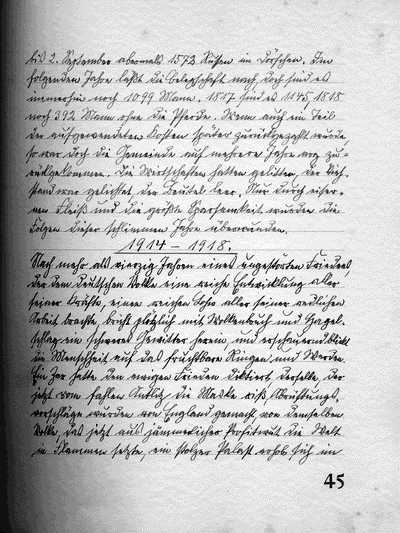 bis 2. September abermals 1572 Russen in Dörschen. Im
folgenden Jahre läßt die Belegschaft nach, doch sind es
immerhin noch 1099 Mann, 1817 sind es 1145, 1818
noch 392 Mann ohne die Pferde. Wenn auch ein Teil
der aufgewendeten Kosten später zurückgezahlt wurde
so war doch die Gemeinde auf mehrere Jahre arg zu-
rückgekommen. Die Wirtschaften hatten gelitten, der Vieh-
stand war gelichtet der Beutel leer. Nur durch eiser-
nen Fleiß und die größte Sparsamkeit wurden die
Folgen dieser schlimmen Jahre überwunden.
1914 – 1918.
Nach mehr als vierzig Jahren eines ungestörten Friedens
der dem Deutschen Volke eine reiche Entwicklung aller
seiner Kräfte, einen reichen Lohn aller seiner redlichen
Arbeit brachte, bricht plötzlich mit Wolkenbruch und Hagel-
schlag ein schweres Gewitter herein und erschauernd blickt
die Menschheit auf das furchtbare Ringen und Morden.
Ein Zar hatte den ewigen Frieden diktiert derselbe, der
jetzt vom fahlen Antlitz die Maske riß, Abrüstungs-
vorschläge wurden von England gemacht, von demselben
Volke, das jetzt aus jämmerlicher Profitwut die Welt
in Flammen setzte, ein stolzer Palast erhob sich im
45